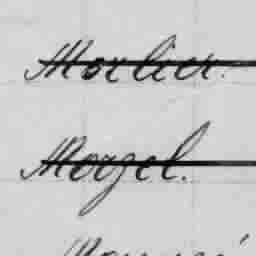 Morlier.
Morgel.